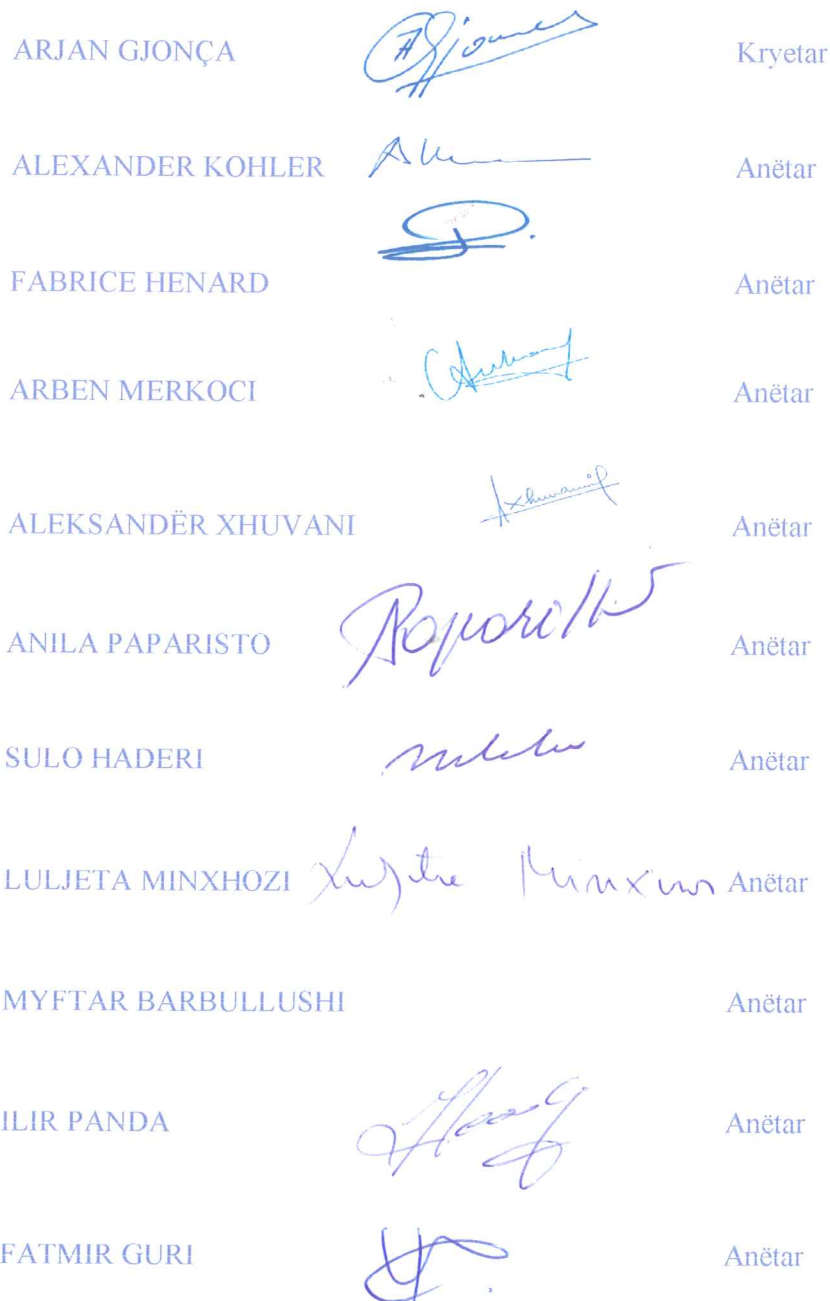 ARJAN GJONÇA Kryetar
ALEXANDER KOHLER Anëtar
FABRICE HENARD Anëtar
ARBEN MERKOCI Anëtar
ALEKSANDËR XHUVANI Xhuvani Anëtar
ANILA PAPARISTO Anëtar
SULO HADERI Anëtar
LULJETA MINXHOZI Anëtar
MYFTAR BARBULLUSHI Anëtar
ILIR PANDA Anëtar
FATMIR GURI Anëtar